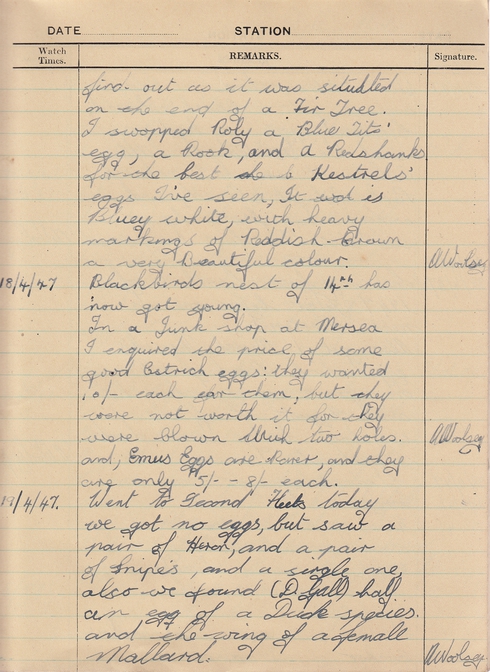 DATE STATION
Watch Times. REMARKS. Signature.
find out as it was situated
on the end of a Fir Tree.
I swopped Roly a Blue Tits'
egg, a Rook, and a Redshanks
for the best Kestrels'
eggs I've seen, It is
Bluey white, with heavy
markings of Reddish-Brown
a very Beautiful colour. AWoolsey
18/4/47 Blackbirds nest of 14th has
now got young.
In a Junk shop at Mersea
I enquired the price of some
good Estrich eggs: they wanted
10/- each for them, but they
were not worth it for they
were blown two holes. AWoolsey
and, Emus Eggs are Rarer, and they
are only 5/- - 8/- each.
19/4/47. Went to Second today
we got no eggs, but saw a
pair of Heron, and a pair
of Snipes, and a single one,
also we found (D. Gall) half
an egg of a Duck species.
and the wing of a female
Mallard. AWoolsey